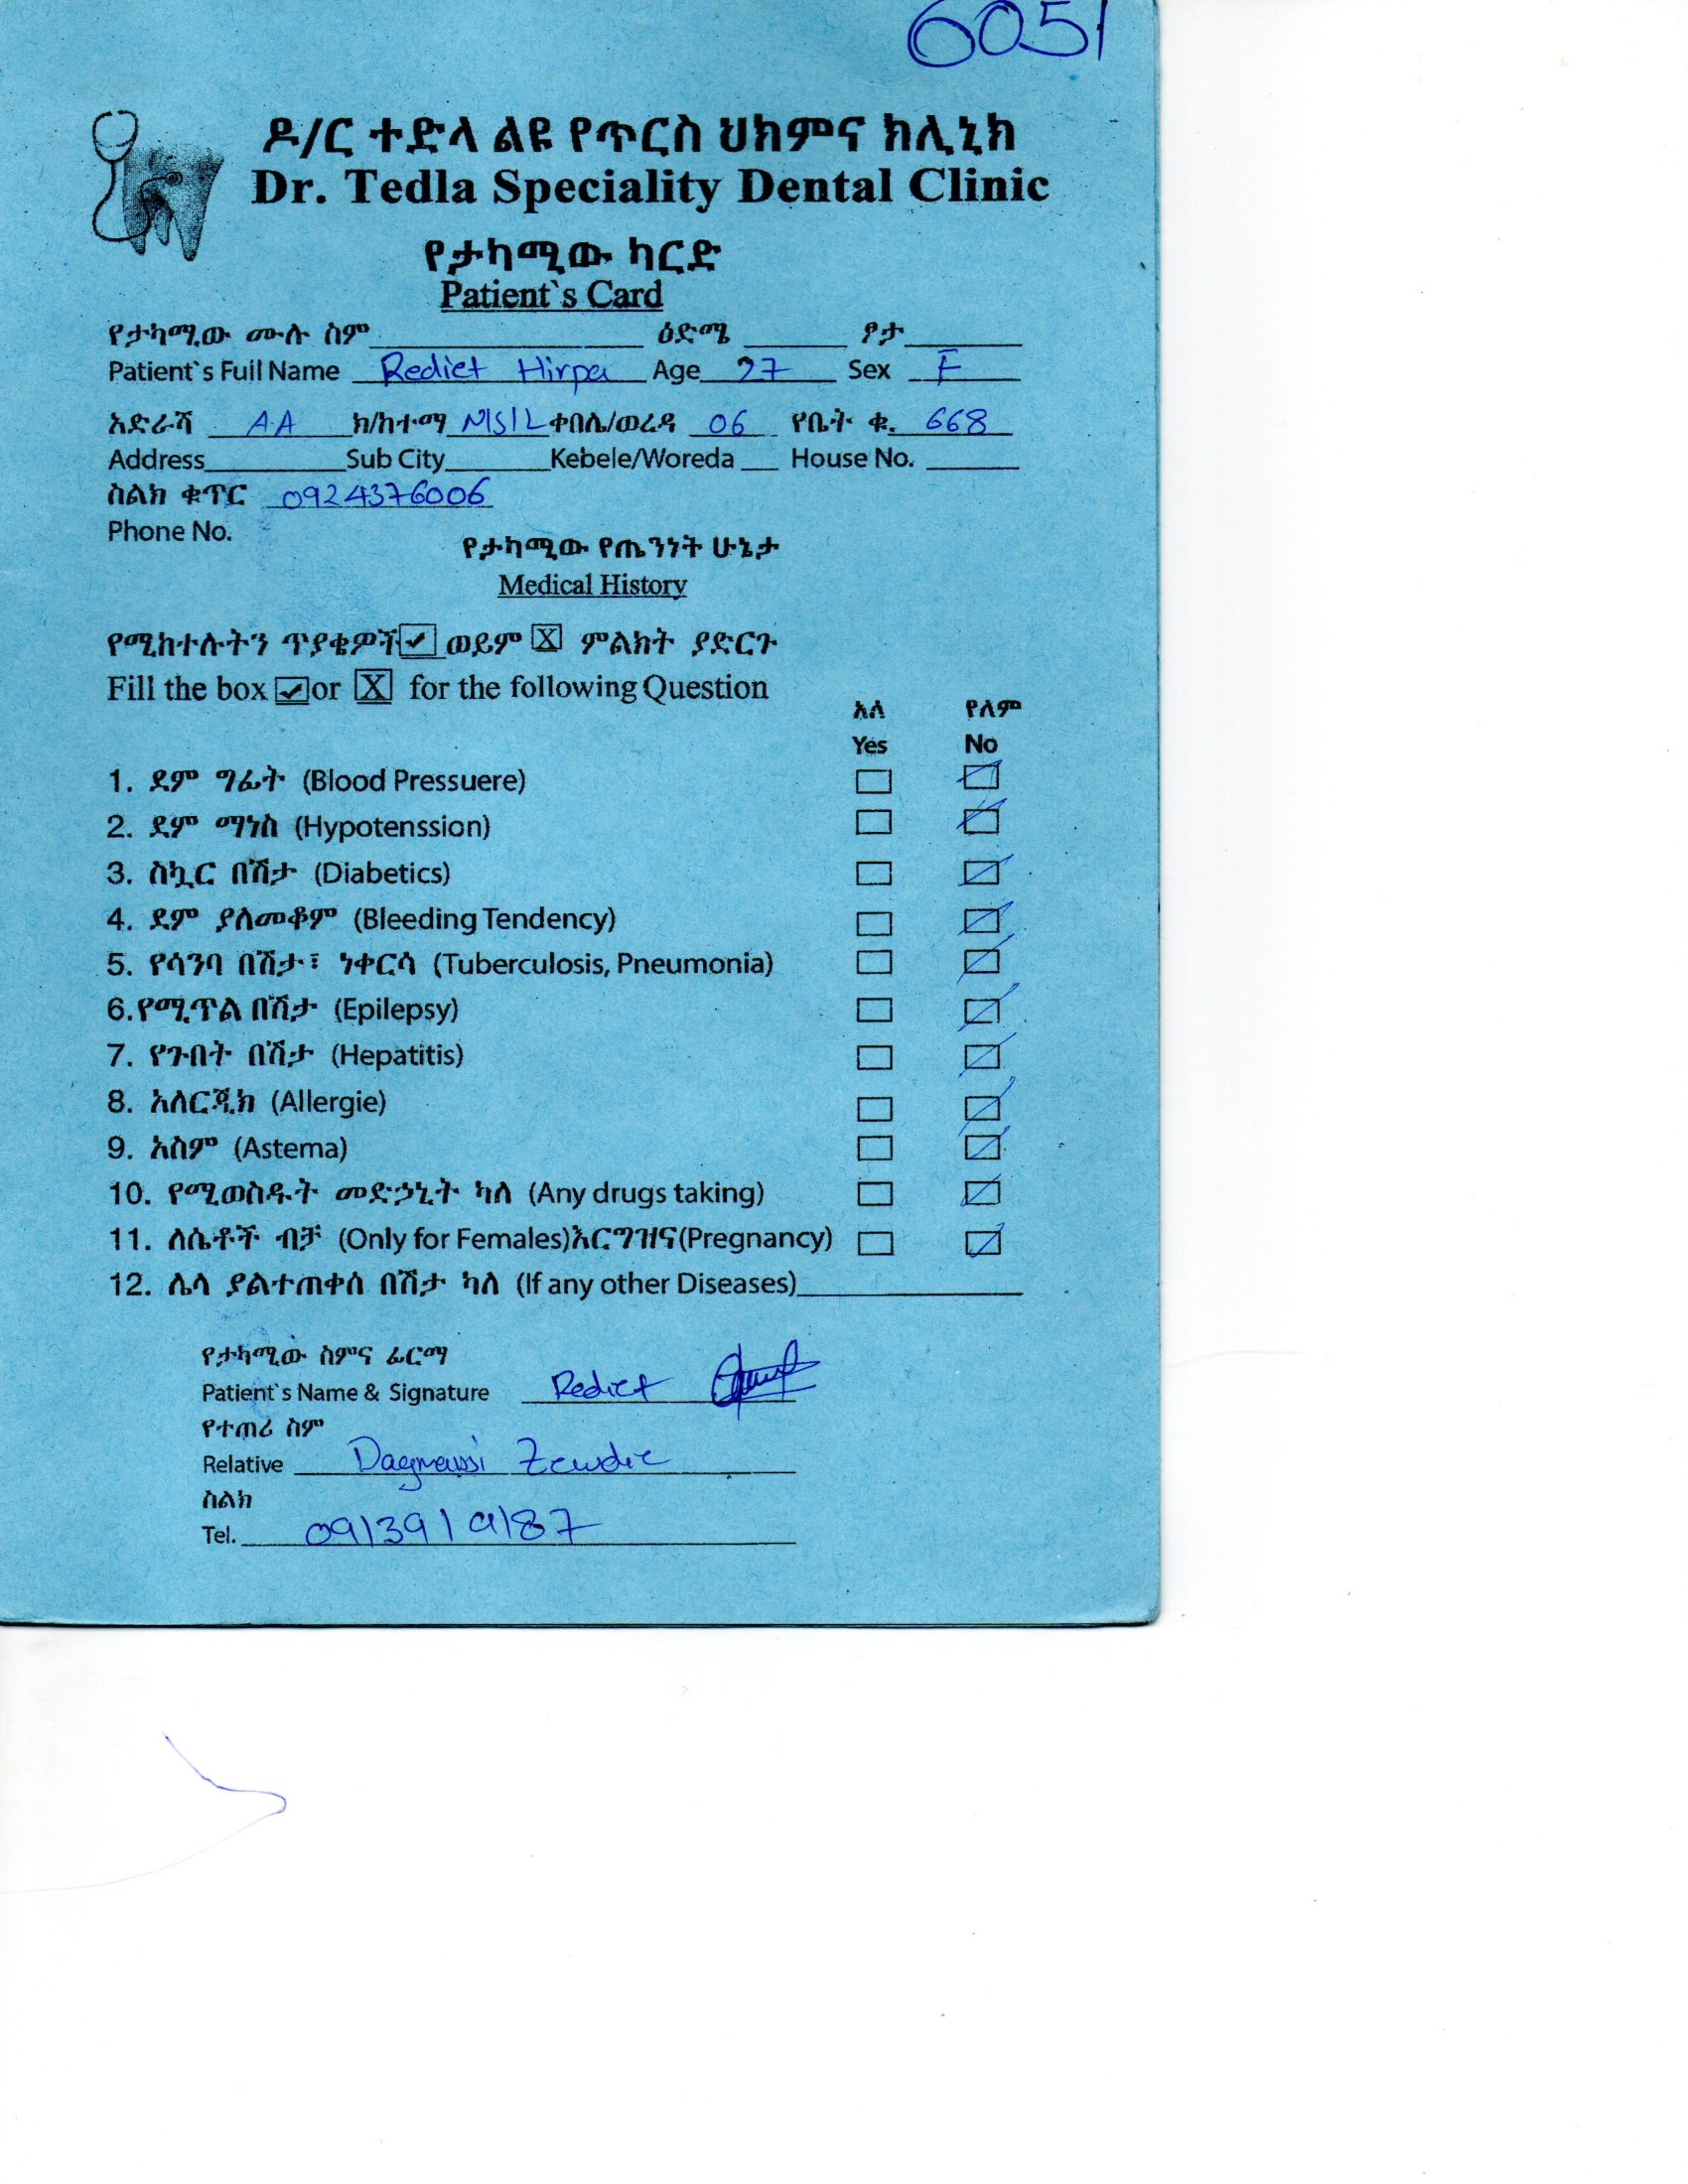 6051
ዶ/ር ተድላ ልዩ የጥርስ ህክምና ክሊኒክ
Dr. Tedla Speciality Dental Clinic
የታካሚው ካርድ
Patient`s Card
የታካሚው ሙሉ ስም ዕድሜ ፆታ
Patient`s Full Name Rediet Hirpa Age 27 Sex F
አድራሻ AA ክ/ከተማ N/S/L ቀበሌ/ወረዳ 06 የቤት ቁ. 668
Address Sub City Kebele/Woreda House No.
ስልክ ቁጥር 0924376006
Phone No.
የታካሚው የጤንነት ሁኔታ
Medical History
የሚከተሉትን ጥያቄዎች ✓ ወይም X ምልክት ያድርጉ
Fill the box ✓ or X for the following Question
አለ የለም
Yes No
1. ደም ግፊት (Blood Pressuere)
2. ደም ማነስ (Hypotenssion)
3. ስኳር በሽታ (Diabetics)
4. ደም ያለመቆም (Bleeding Tendency)
5. የሳንባ በሽታ፣ ነቀርሳ (Tuberculosis, Pneumonia)
6.የሚጥል በሽታ (Epilepsy)
7. የጉበት በሽታ (Hepatitis)
8. አለርጂክ (Allergie)
9. አስም (Astema)
10. የሚወስዱት መድኃኒት ካለ (Any drugs taking)
11. ለሴቶች ብቻ (Only for Females)እርግዝና(Pregnancy)
12. ሌላ ያልተጠቀሰ በሽታ ካለ (If any other Diseases)
የታካሚው ስምና ፊርማ
Patient`s Name & Signature Rediet
የተጠሪ ስም
Relative Zewdie
ስልክ
Tel. 0913919187